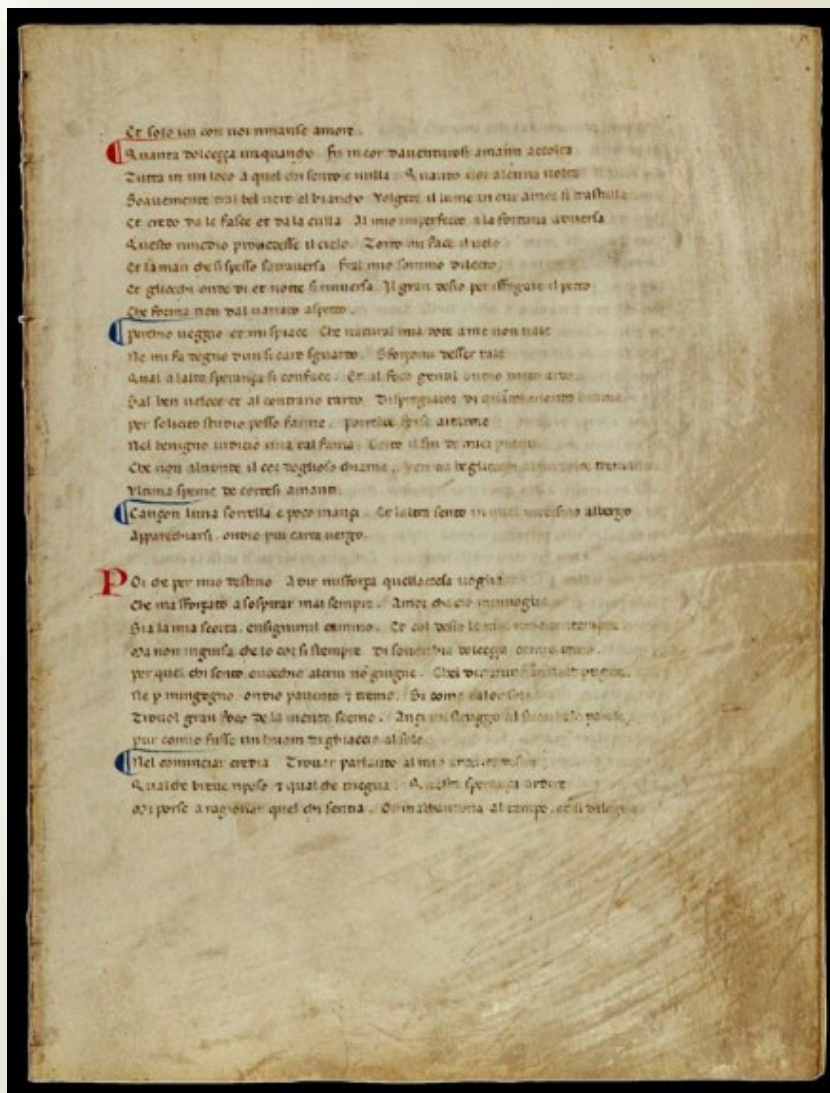 Et solo iui con uoi rimanse amore.
Quanta dolcezza unquancho Fu in cor dauenturosi amanti accolta
Tutta in un loco a quel chi sento e nulla. Quando uoi alcuna uolta
Soauemente tral bel nero el biancho Volgete il lume in cui amor si trastulla
Et credo da le fasce et da la culla Al mio imperfecto a la fortuna aduersa
Questo rimedio prouedesse il cielo. Torto mi face il uelo
Et la man che si spesso sattrauersa Fral mio sommo dilecto
Et gliocchi onde di et notte si rinuersa Il gran desio per isfogare il petto
Che forma tien dal uariato aspetto.
Perchio ueggio et mi spiace Che natural mia dote a me non uale
Ne mi fa degno dun si caro sguardo. Sforzomi desser tale
Qual a lalta speranza si conface. Et al foco gentil ondio tutto ardo.
Sal ben ueloce et al contrario tardo Dispregiator di quanto
per solicito studio posso farme. porrebbe forse aitarme
Nel benigno iudicio una tal fama Certo il fin de miei
Che non altronde il cor doglioso chiama. ven da begliocchi
Vltima speme de cortesi amanti.
Canzon luna sorella e poco inanzi. Et laltra sento in quel albergo
Apparechiarsi. ondio piu carta uergo.
Poi che per mio destino A dir mi sforza quellaccesa uoglia
Che ma sforzato a sospirar mai sempre. Amor cha cio minuoglia
Sia la mia scorta. ensignimil camino. Et col desio le mie
Ma non in guisa che lo cor si stempre di souerchia dolcezza
per quel chi sento ouocchio altrui nō giugne. Chel dir
Ne p mingegno ondio pauento ⁊ tremo. Si come talor sole
Trouol gran foco de la mente scemo. Anzi mi struggo al suon
pur comio fusse un huom di ghiaccio al sole
Nel cominciar credia Trouar parlando al mio
Qualche breue riposo ⁊ qualche tregua. Questa speranza ardire
Mi porse a ragionar quel chi sentia. Or mabbandona al tempo. et si dilegua